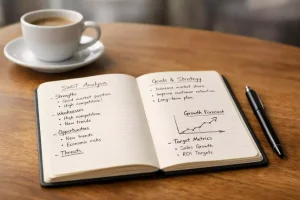 SWOT Analysis
Strengths
• Good market position
• High competitions!
Weaknesses
• High competition!
• New trends
- Opportunities
• New trends
• Economic risks
- Threats
Goals & Strategy
• Increase market share
• Improve customer retention
• Long-term plan
Growth Forecast
- Target Metrics
• Sales Growth
• ROI Targets